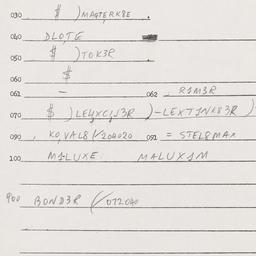 030 $ )MAQTERK8E .
040 DLOTE
050 $ )TOK3R
060 $
061 – 062 , R1M3R
070 $ )LEYXCIJ3R )-LEXTINK83R )
090 , KO,VAL8/204020 091 = STEL8MAX
100 M1LUXE MALUX1M
900 BOND3R (/072040